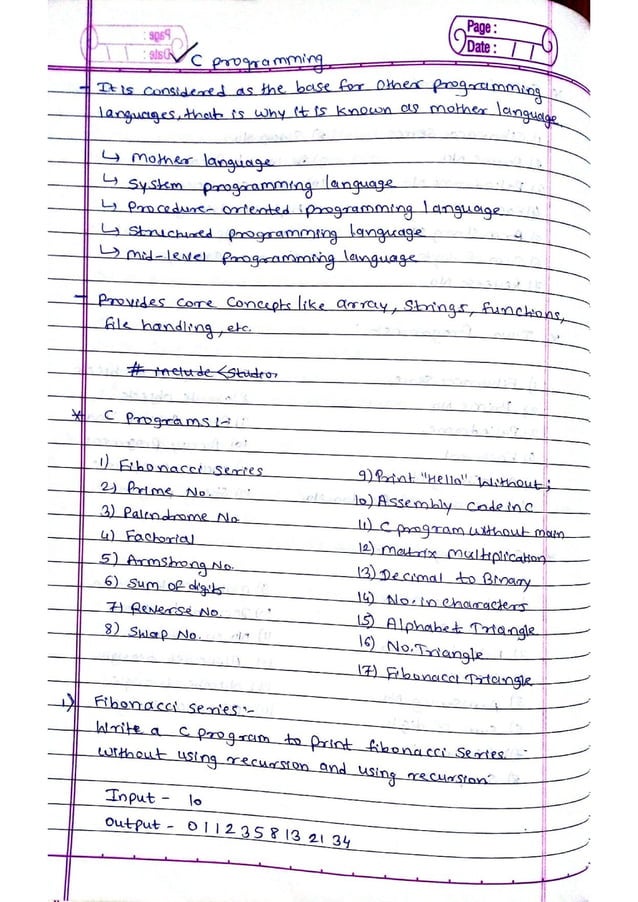 Page :
Date :
C programming
- It is considered as the base for other programming
languages, that is why it is known as mother language.
↳ Mother language
↳ System programming language
↳ Procedure-oriented programming language
↳ Structured programming language
↳ mid-level programming language
- Provides core concepts like array, strings, functions,
file handling, etc.
# include <Studio>
* C Programs:-
1) Fibonacci series
2) Prime No.
3) Palendrome No
4) Factorial
5) Armstrong No.
6) Sum of digits
7) Reverse No.
8) Swap No.
9) Print "Hello" without ;
10) Assembly code in C
11) C program without main
12) Matrix multiplication
13) Decimal to Binary
14) No. in characters
15) Alphabet Triangle
16) No. Triangle
17) Fibonacci Triangle
1) Fibonacci series:-
Write a C program to print fibonacci series
without using recursion and using recursion
Input - 10
Output - 0 1 1 2 3 5 8 13 21 34